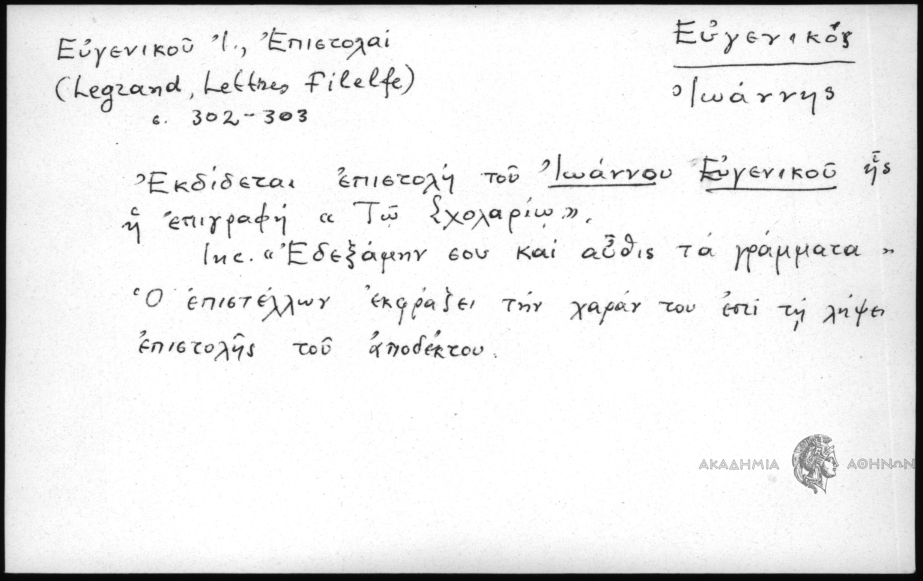 Εὐγενικοῦ Ἰ., Ἐπιστολαί
(Legrand, Lettres Filelfe)
σ. 302-303
Εὐγενικός
Ἰωάννης
Ἐκδίδεται ἐπιστολή τοῦ Ἰωάννου Εὐγενικοῦ ἧς
ἡ ἐπιγραφή « Τῷ Σχολαρίῳ».
Inc. «Ἐδεξάμην σου καί αὖθις τά γράμματα»
Ὁ ἐπιστέλλων ἐκφράζει τήν χαράν του ἐπί τῇ λήψει
ἐπιστολῆς τοῦ ἀποδέκτου.
ΑΚΑΔΗΜΙΑ ΑΘΗΝΩΝ